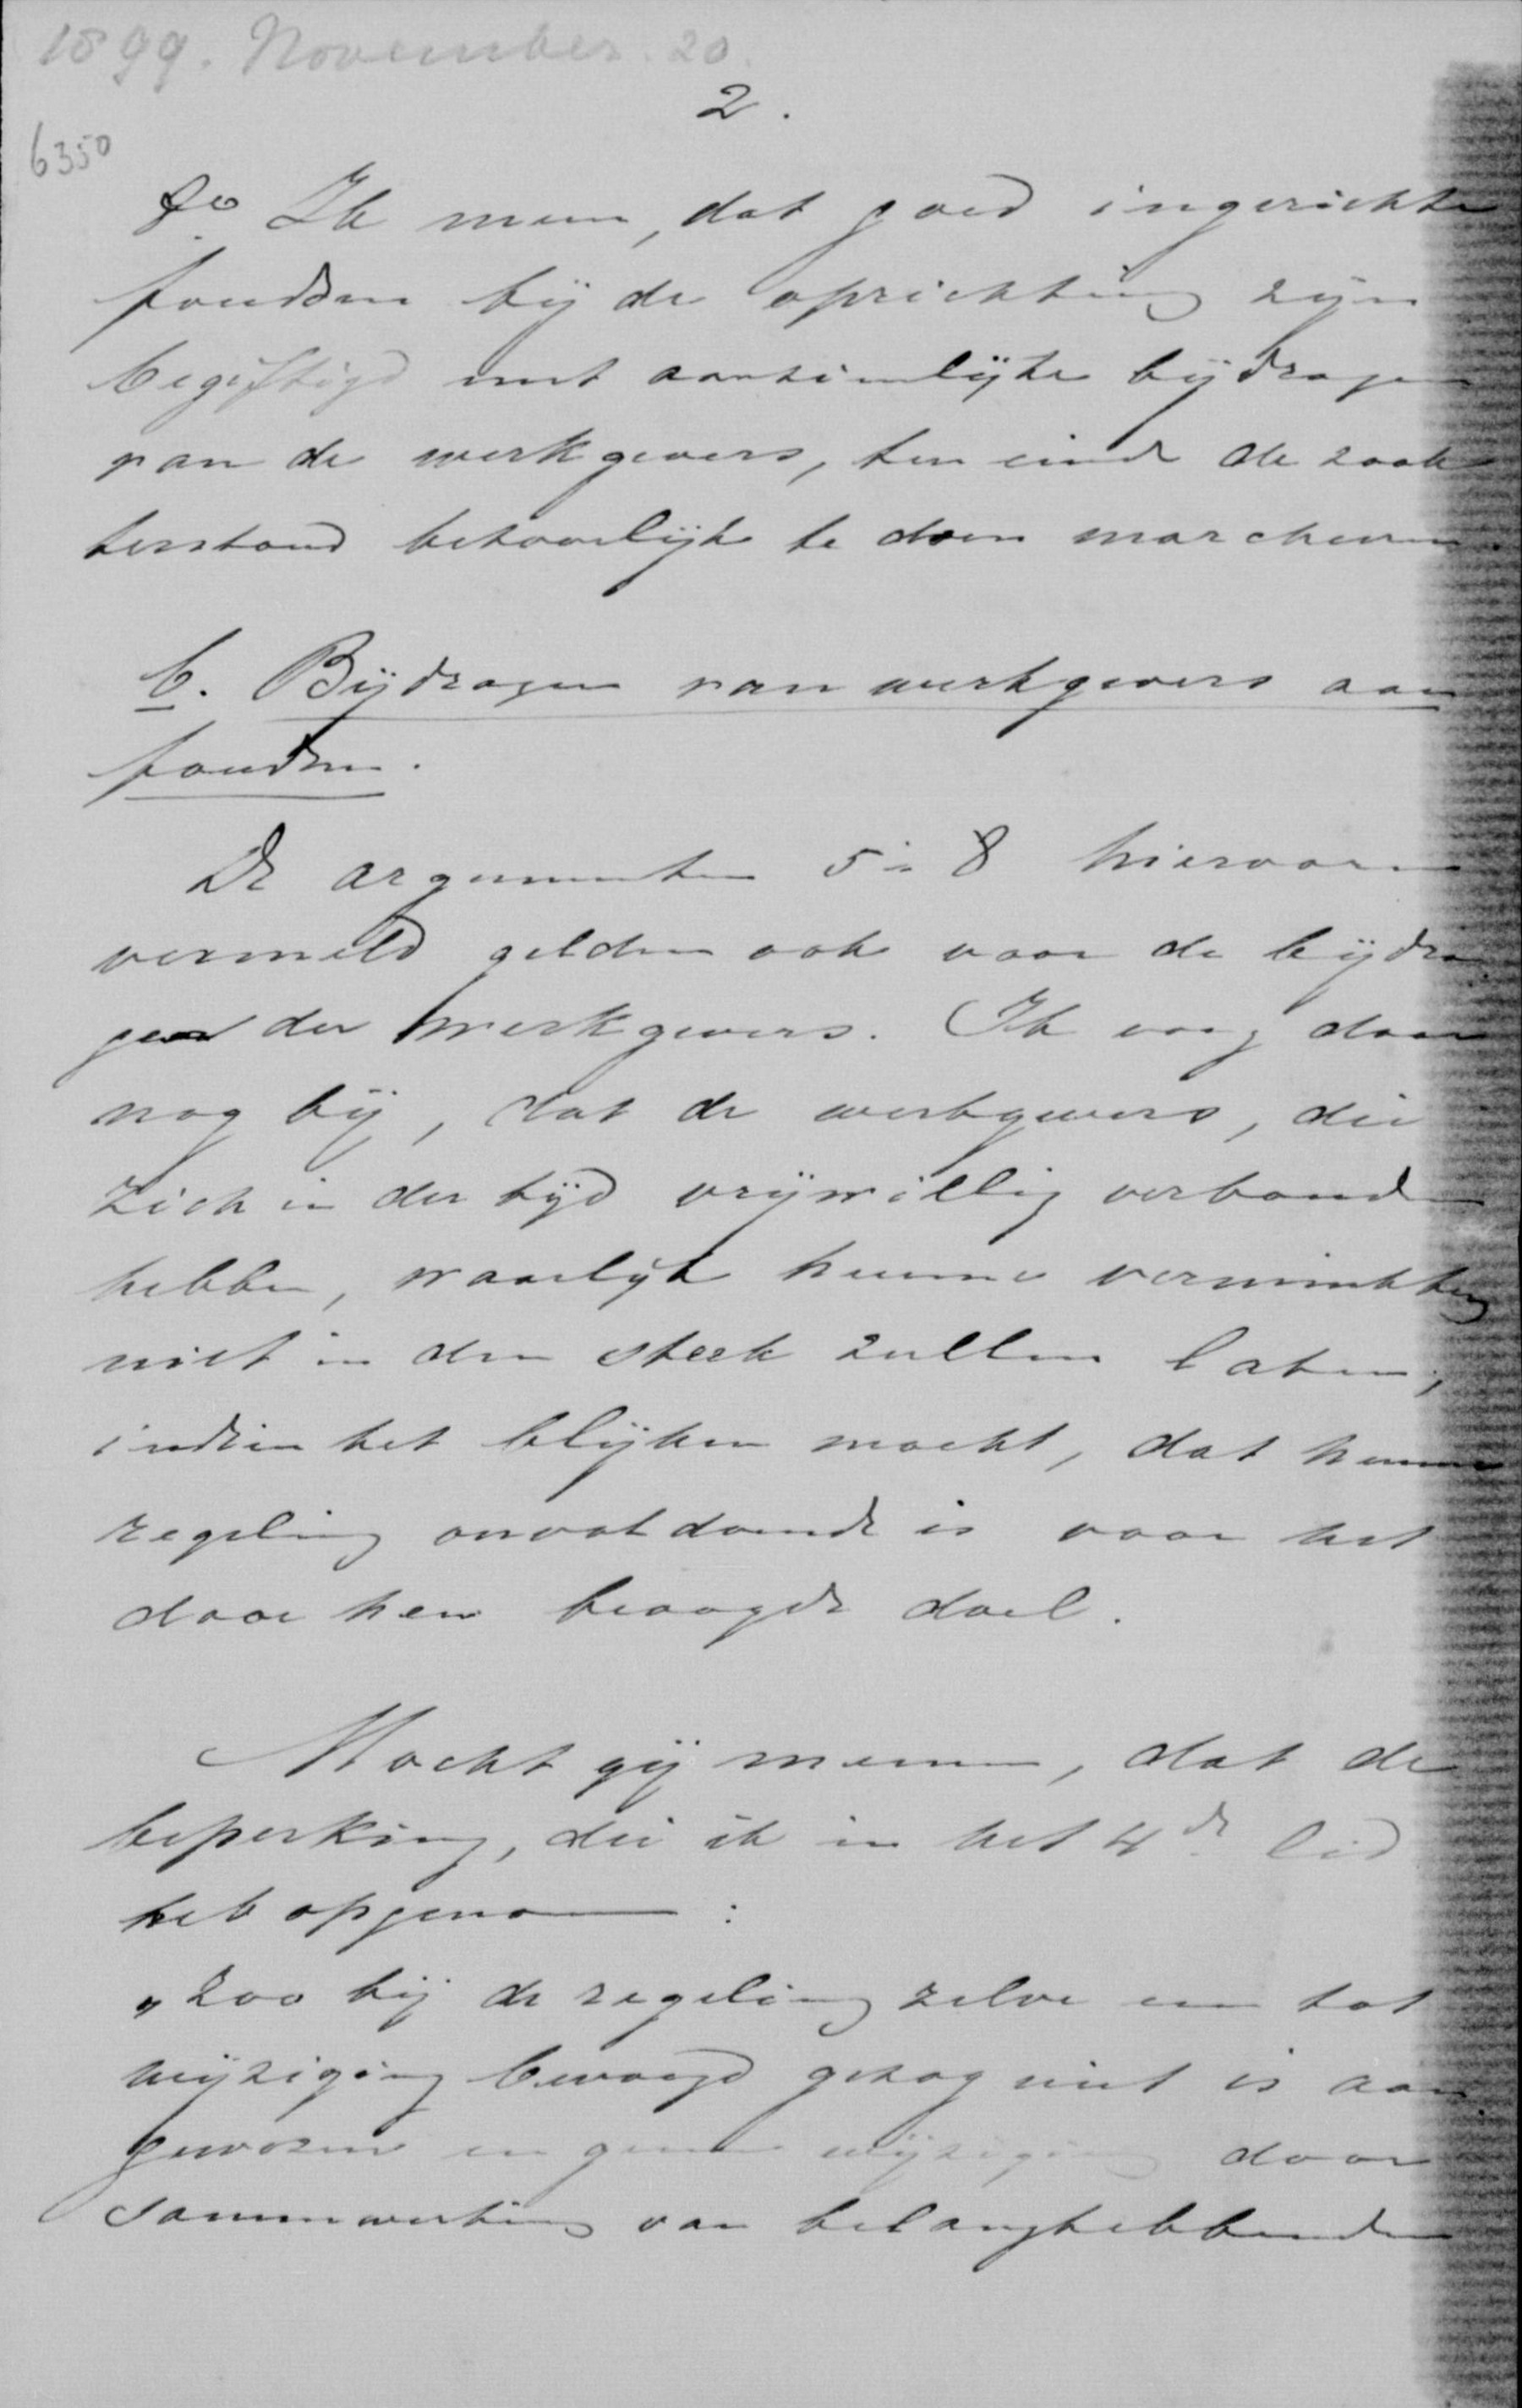 1899. November. 20.
2.
6350
8o. Ik meen, dat goed ingerichte
fondsen bij de oprichting zijn
begiftigd met aanzienlijke bijdragen
van de werkgevers, ten einde de zaak
terstond behoorlijk te doen marcheeren.
C. Bijdragen van werkgevers aan
fondsen.
De argumenten 5 à 8 hiervoren
vermeld gelden ook voor de bijdra-
gen der werkgevers. Ik voeg daar
nog bij, dat de werkgevers, die
zich in der tijd vrijwillig verbonden
hebben, waarlijk hunne
niet in den steek zullen laten,
indien het blijken mocht, dat hunne
regeling onvoldoende is voor het
door hen beoogde doel.
Mocht gij meenen, dat de
beperking, die ik in het 4de lid
heb opgenomen:
„zoo bij de regeling zelve een tot
wijziging bevoegd gezag niet is aan-
gewezen en geene wijziging door
samenwerking van belanghebbenden